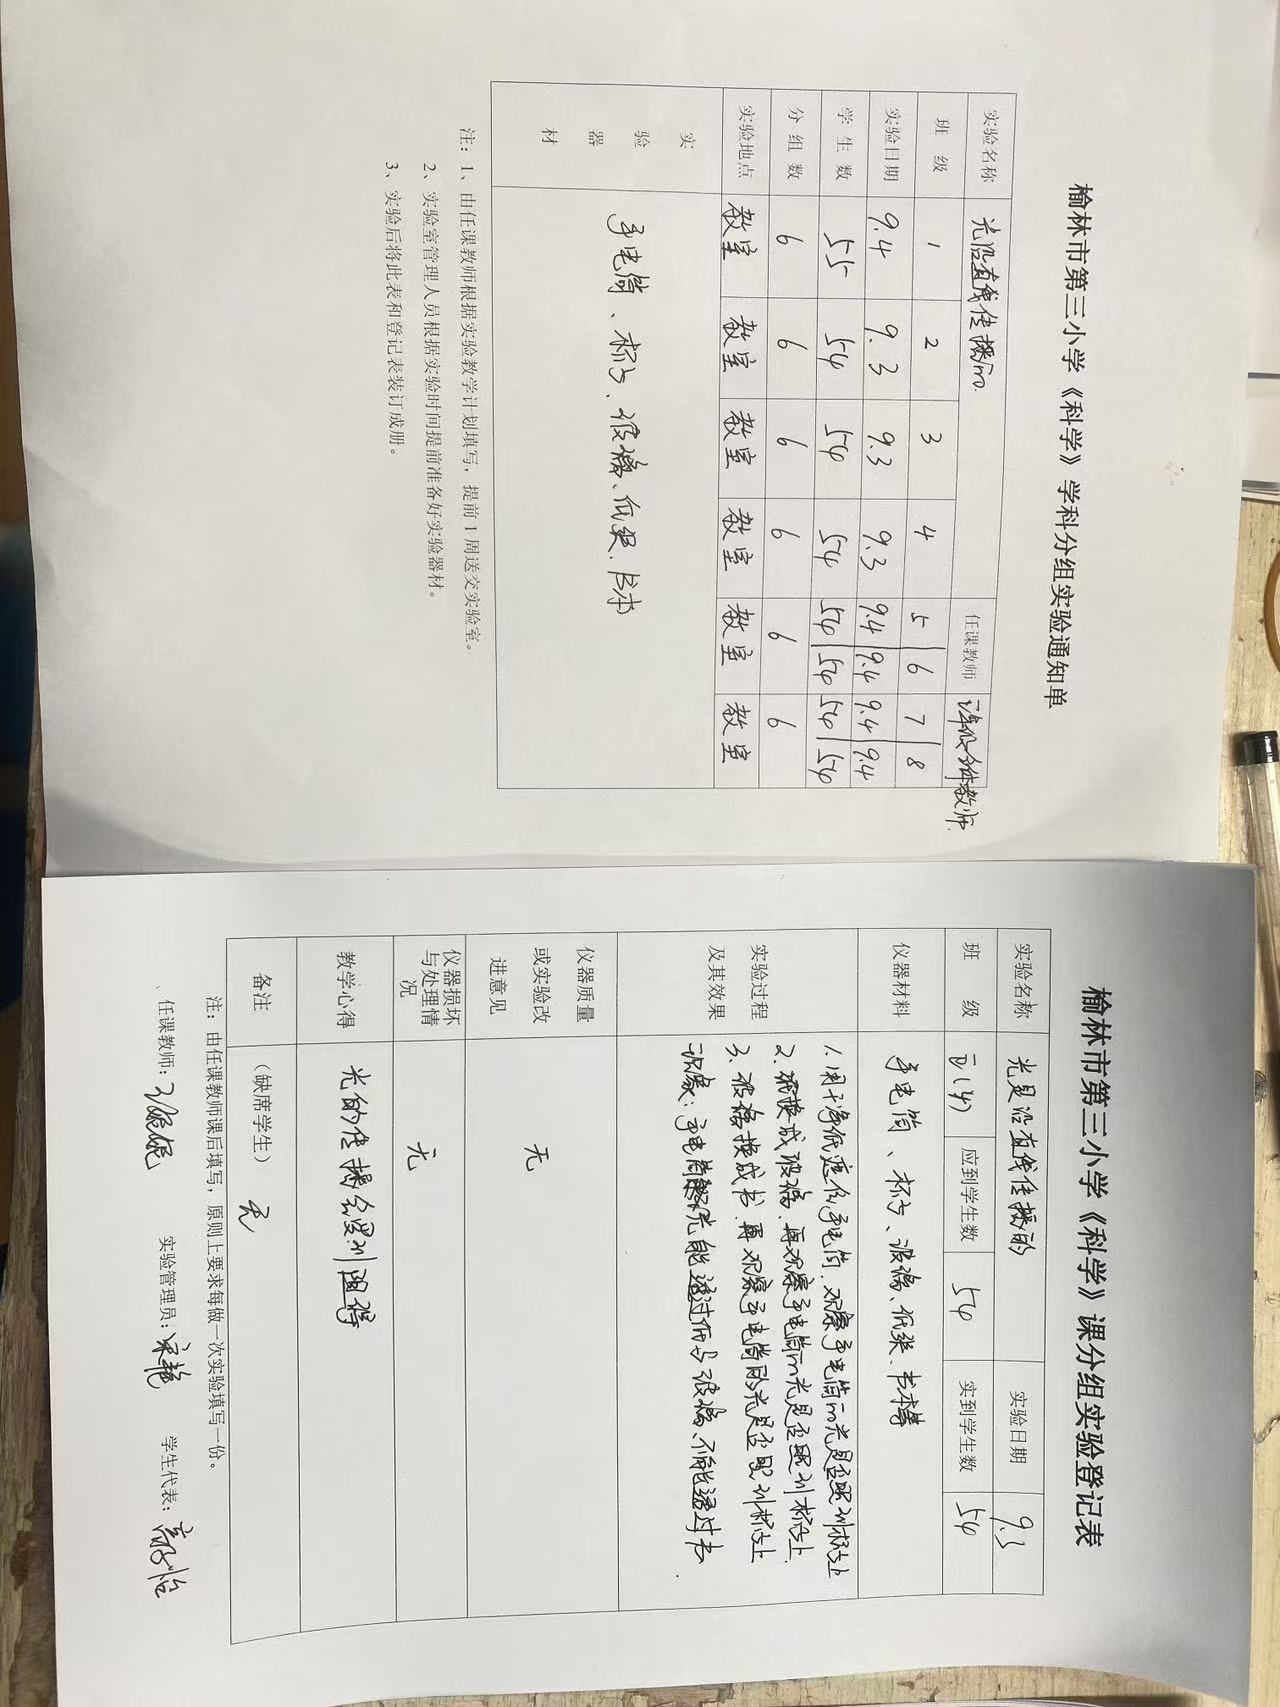 榆林市第三小学《科学》学科分组实验通知单
实验名称 光沿直线传播的 任课教师 年级全体教师
班 级 1 2 3 4 5 6 7 8
实验日期 9.4 9.3 9.3 9.3 9.4 9.4 9.4 9.4
学 生 数 55 54 54 54 54 54 54 54
分 组 数 6 6 6 6 6 6
实验地点 教室 教室 教室 教室 教室 教室
实验器材 手电筒、杯子、玻璃、纸张、书本
注：1、由任课教师根据实验教学计划填写，提前1周送交实验室。
2、实验室管理人员根据实验时间提前准备好实验器材。
3、实验后将此表和登记表装订成册。
榆林市第三小学《科学》课分组实验登记表
实验名称 光是沿直线传播的 实验日期 9.3
班 级 五(4) 应到学生数 54 实到学生数 54
仪器材料 手电筒、杯子、玻璃、纸张、书本等
实验过程及其效果
1.用干净纸遮住手电筒、观察手电筒的光是否照到杯子上
2.纸换成玻璃、再观察手电筒的光是否照到杯子上
3、玻璃换成书、再观察手电筒的光是否照到杯子上
现象：手电筒的光能透过纸与玻璃、不能透过书
仪器质量或实验改进意见 无
仪器损坏与处理情况 无
教学心得 光的传播会受到阻碍
备注 （缺席学生） 无
注：由任课教师课后填写，原则上要求每做一次实验填写一份。
任课教师： 实验管理员：宋艳 学生代表：